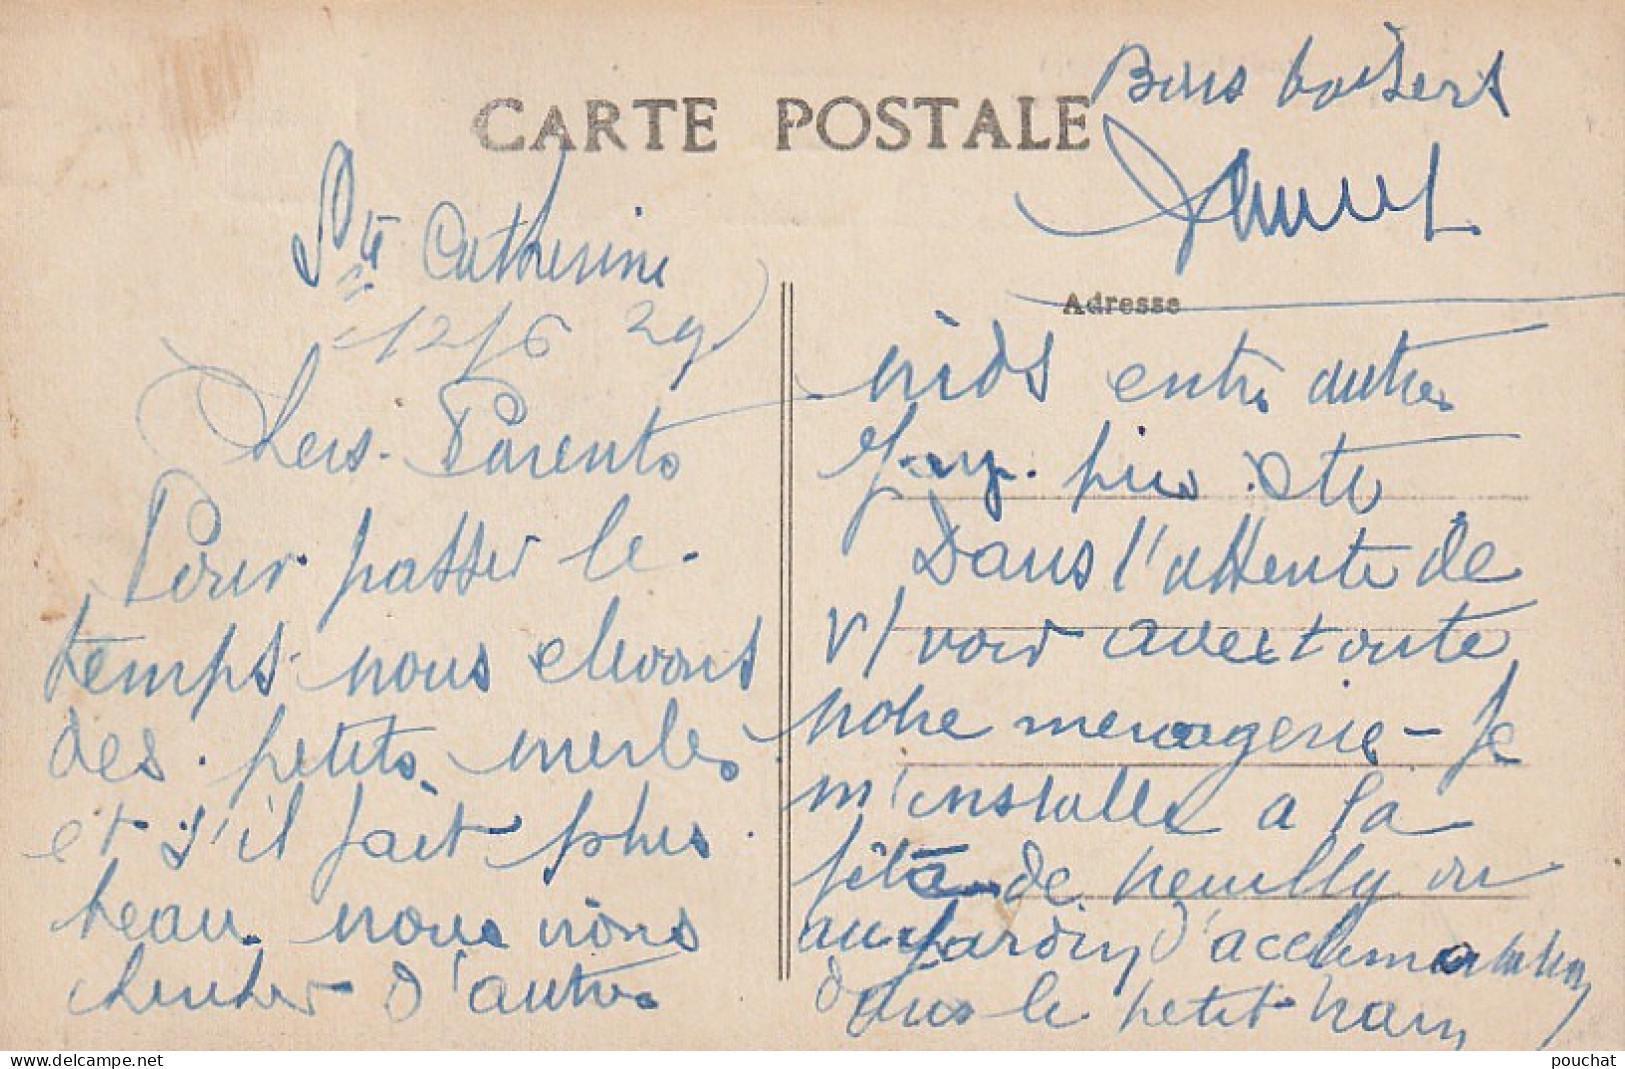 CARTE POSTALE
Ste Catherine
12/6 29
Chers Parents
Pour passer le
temps nous elevons
des petits merles
et s'il fait plus
beau nous irons
chercher d'autres
Adresse
nids entre autres
pies etc
Dans l'attente de
v/ voir avec toute
notre menagerie - Je
m'installe a la
fête de Neuilly ou
au Jardin d'acclimatation
dans le petit train
Bons baisers
pouchat
delcampe.net